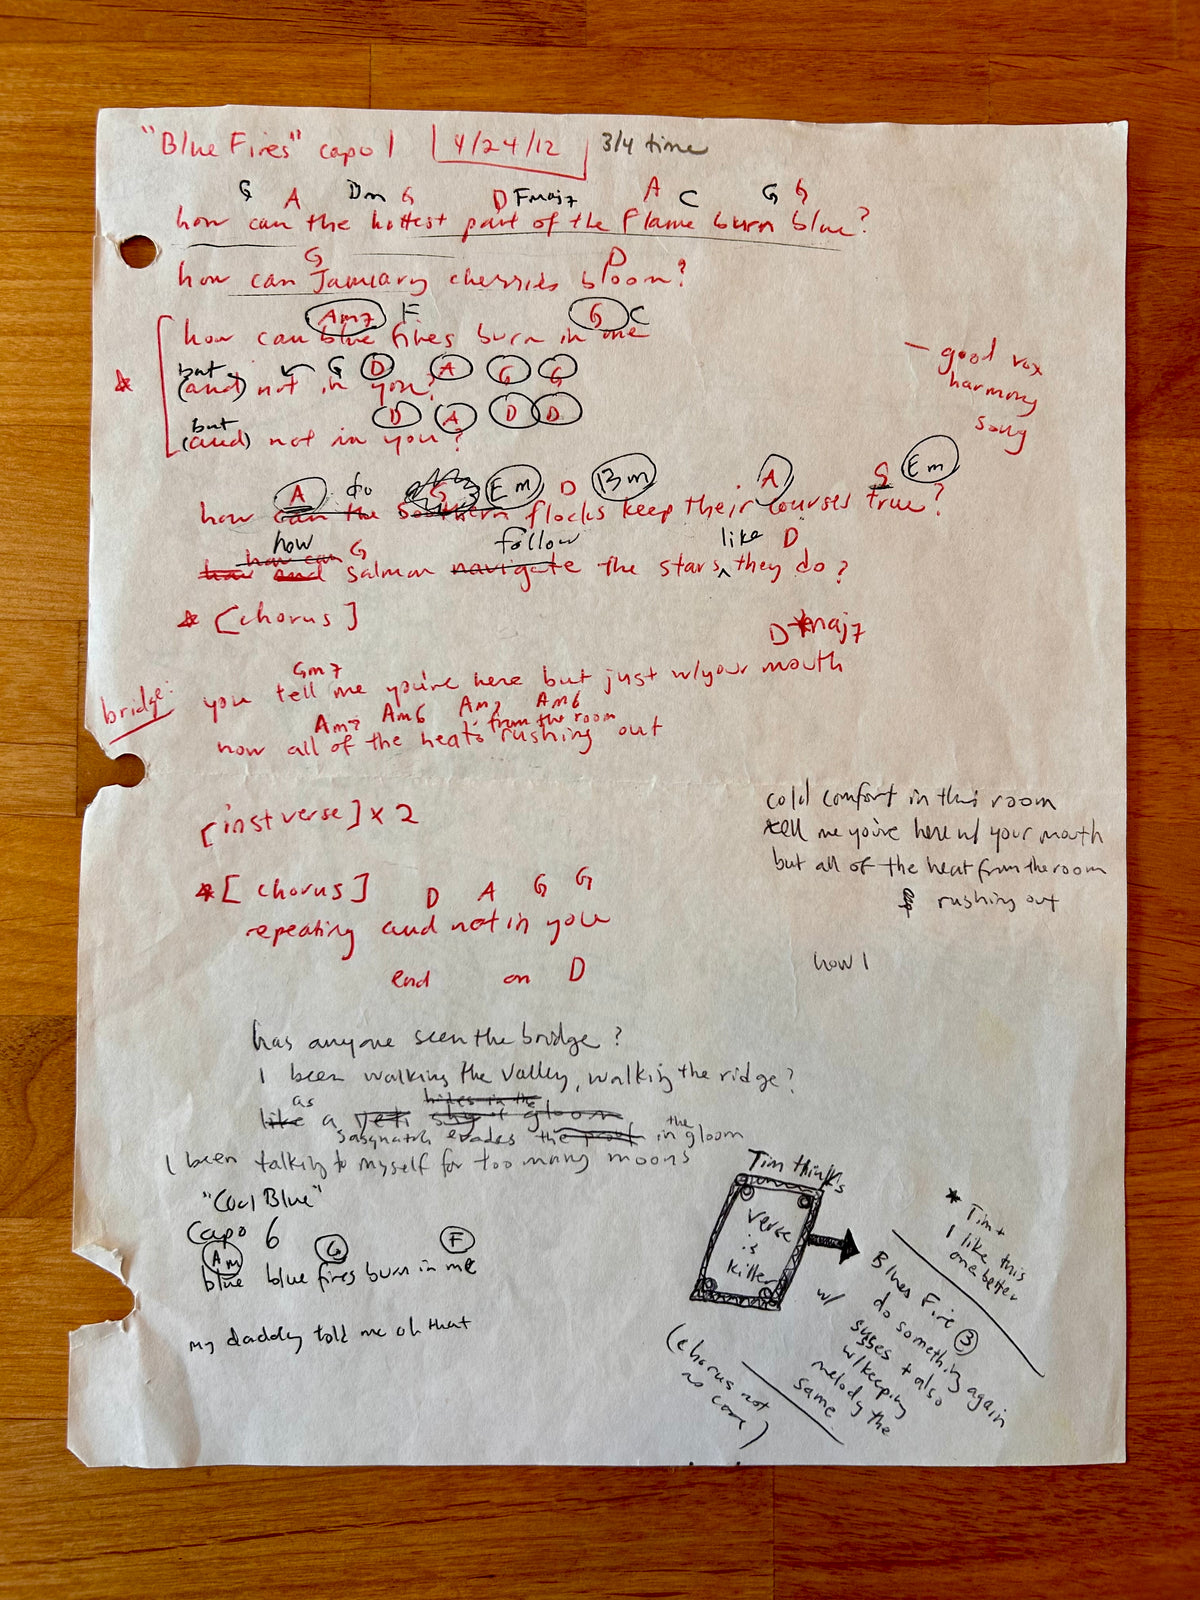 "Blue Fires" capo 1 4/24/12 3/4 time
G A Dm G D Fmaj7 A C G G
how can the hottest part of the flame burn blue?
G D
how can January cherries bloom?
Am7 F G C
how can blue fires burn in me
but G D A G G
(and) not in you?
but D A D D
(and) not in you?
— good vox
harmony
song
A do G Em D Bm A G Em
how can the southern flocks keep their courses true?
how follow like D
how can G
how and salmon navigate the stars ^ they do?
* [chorus]
D maj7
Gm7
bridge: you tell me you're here but just w/your mouth
Am7 Am6 Am7 Am6
from the room
now all of the heat's rushing out
[inst verse] x 2
cold comfort in this room
tell me you're here w/ your mouth
but all of the heat from the room
rushing out
* [chorus] D A G G
repeating and not in you
how I
end on D
has anyone seen the bridge?
I been walking the valley, walking the ridge?
as hides in the
like a yeti shy of gloom
sasquatch evades the proof in the gloom
I been talking to myself for too many moons
"Cool Blue"
Capo 6
Am G F
blue blue fires burn in me
my daddy told me oh that
Tim thinks
verse
is
killer
(chorus not
as cool)
* Tim +
I like this
one better
Blues Fire 3
w/ do something again
susses + also
w/keeping
melody the
same